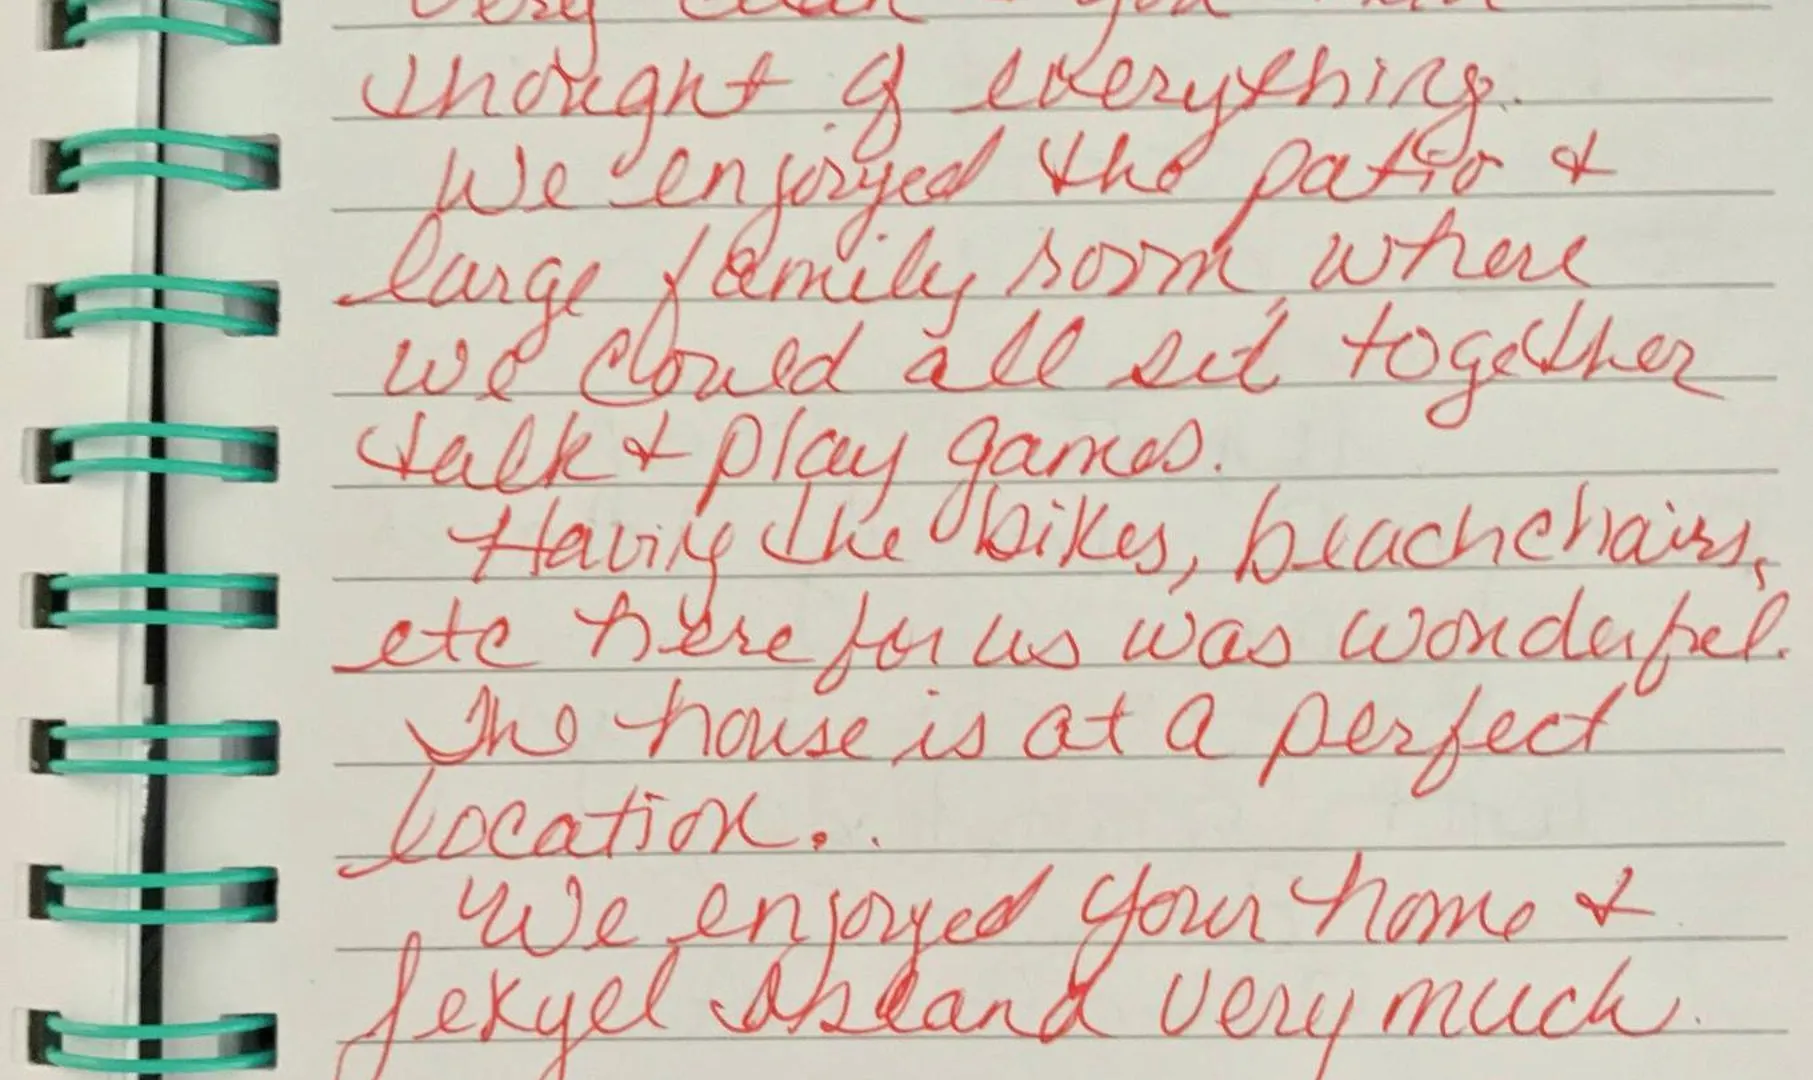 very clean & you
thought of everything.
We enjoyed the patio &
large family room where
we clould all sit together
talk & play games.
Having the bikes, beachchairs,
etc here for us was wonderful.
The house is at a perfect
location..
We enjoyed your home &
Jekyel Island very much.